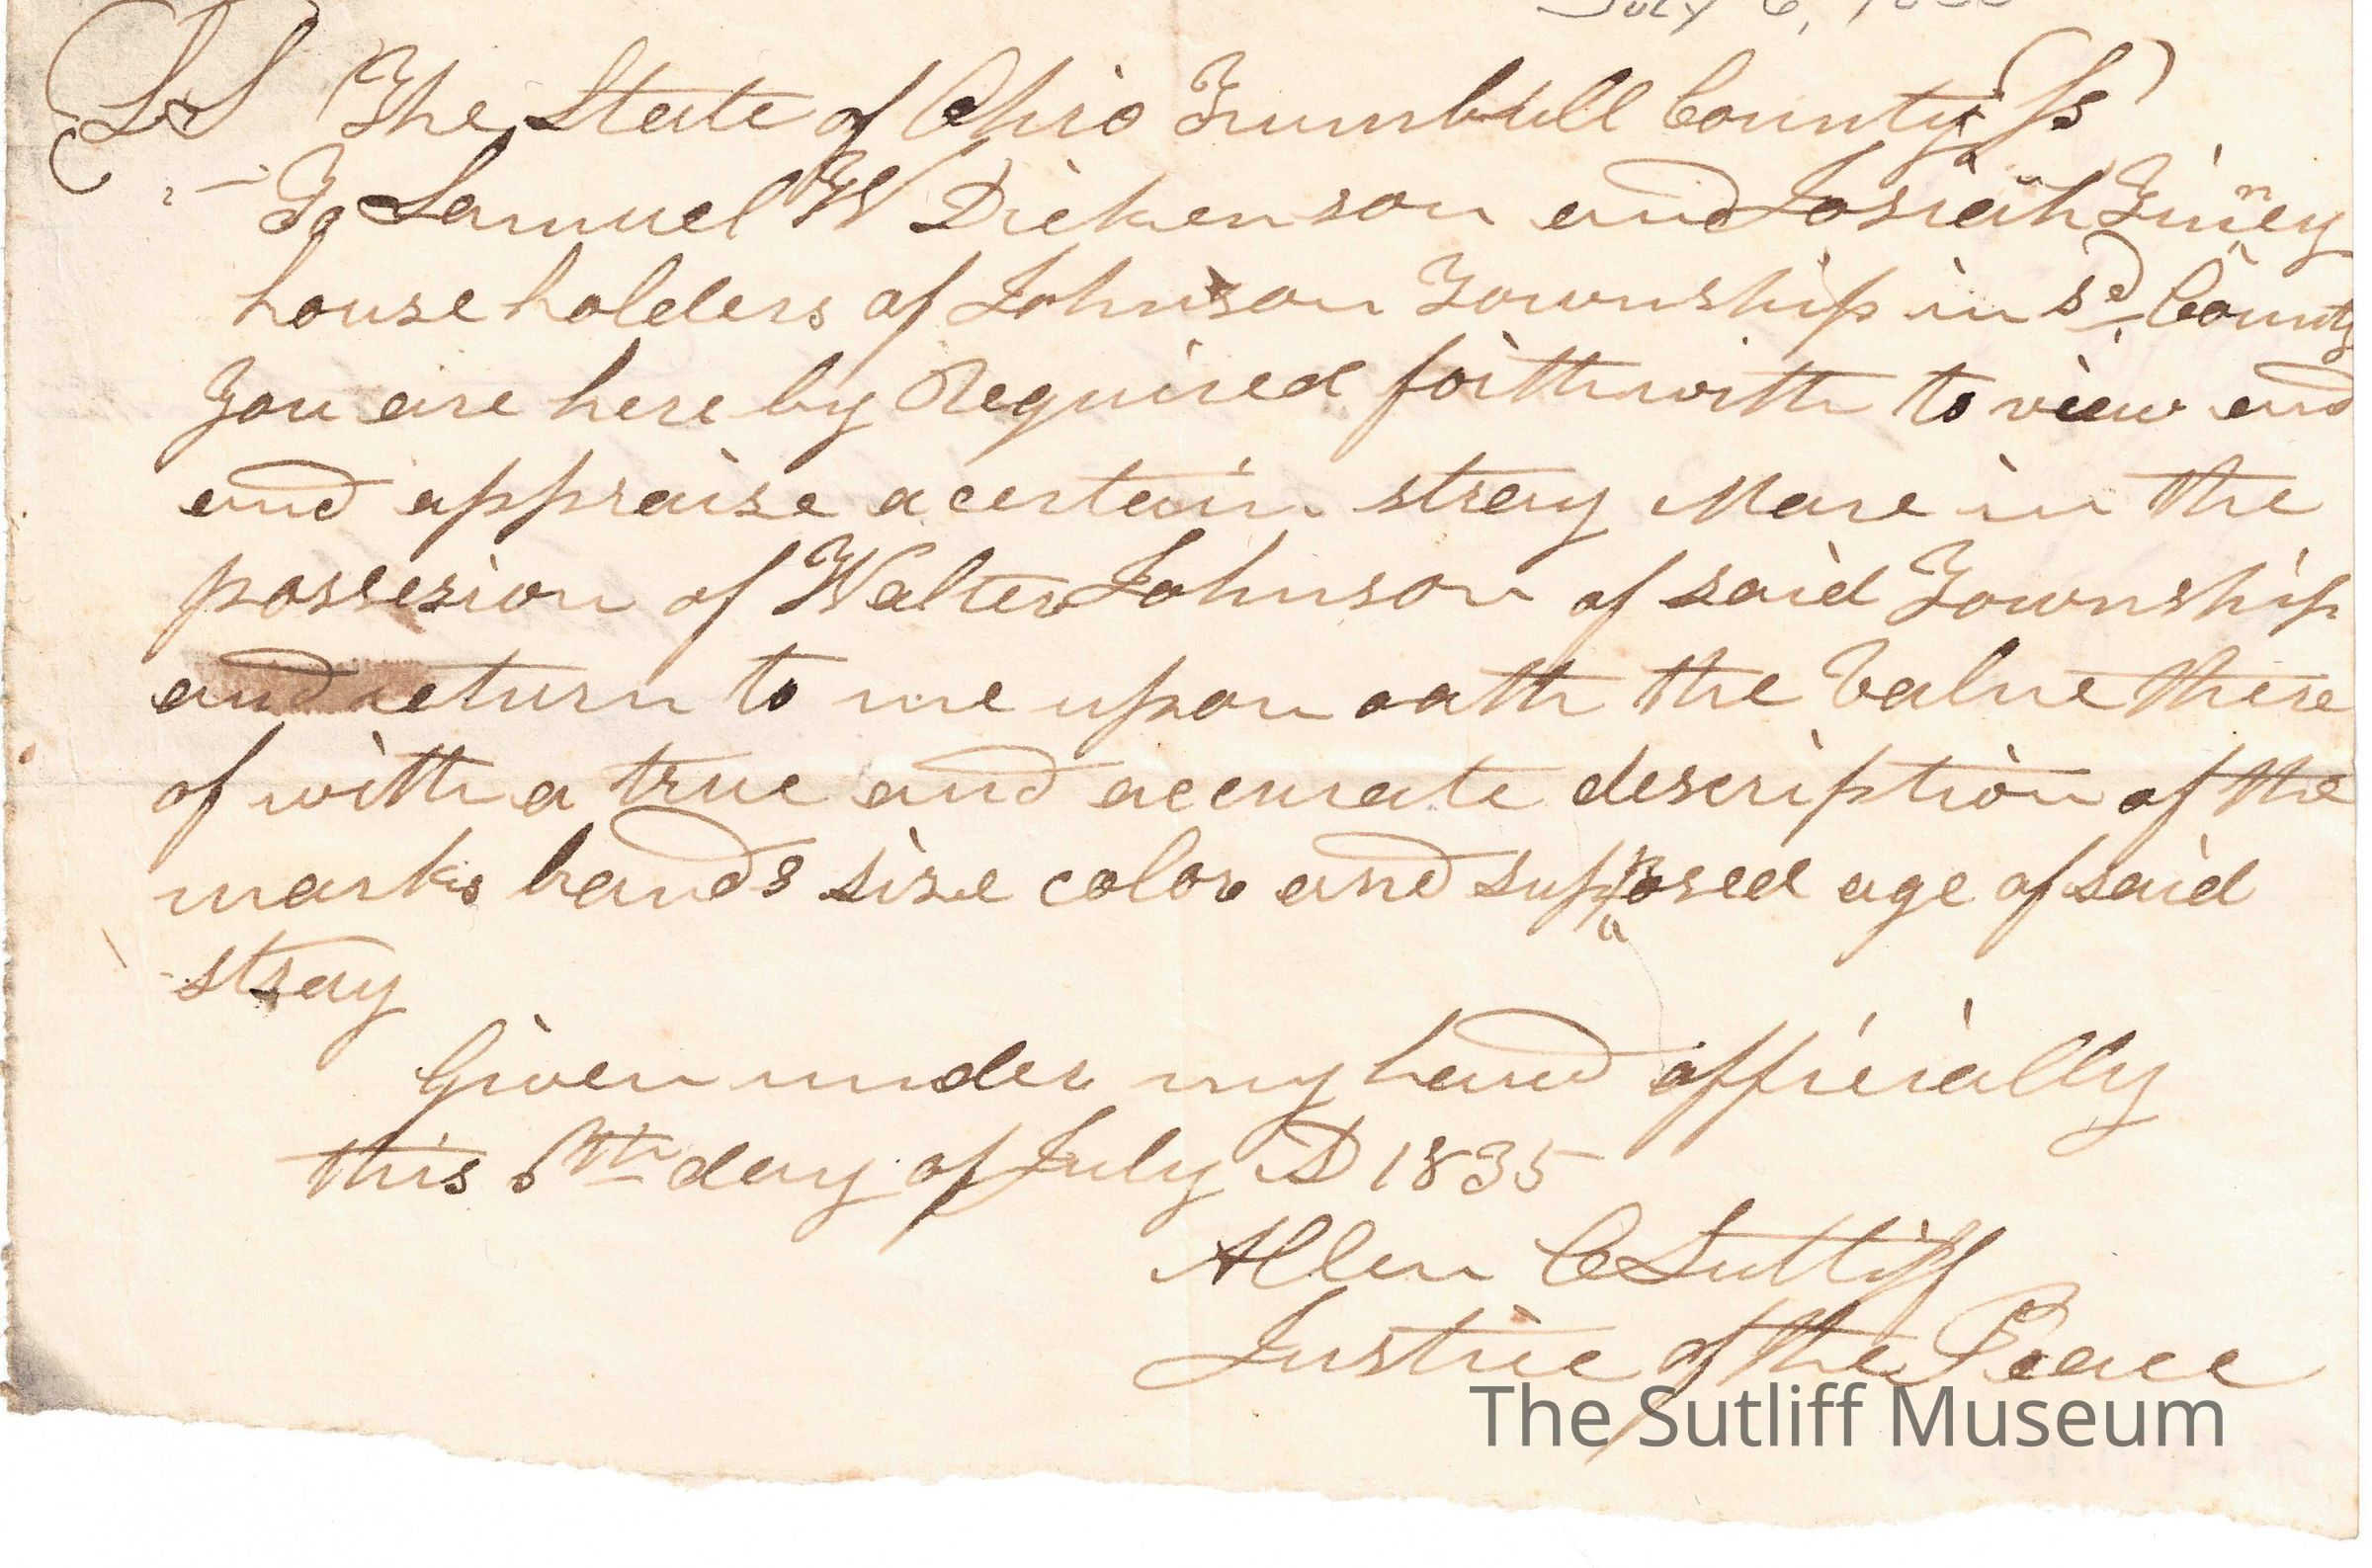 July 6, 18
LS (The State of Ohio Trumbull County, ss)
To Samuel W Dickenson and Josiah Finney
house holders of Johnson Township in sd County
You are here by Required forthwith to view and
and appraise a certain stray Mare in the
possesion of Walter Johnson of said Township
and return to me upon oath the Value there
of with a true and accurate description of the
marks brands size color and supposed age of said
stray
Given under my hand officially
this 6th day of July AD 1835
Allen C Sutliff
Justice of the Peace
The Sutliff Museum